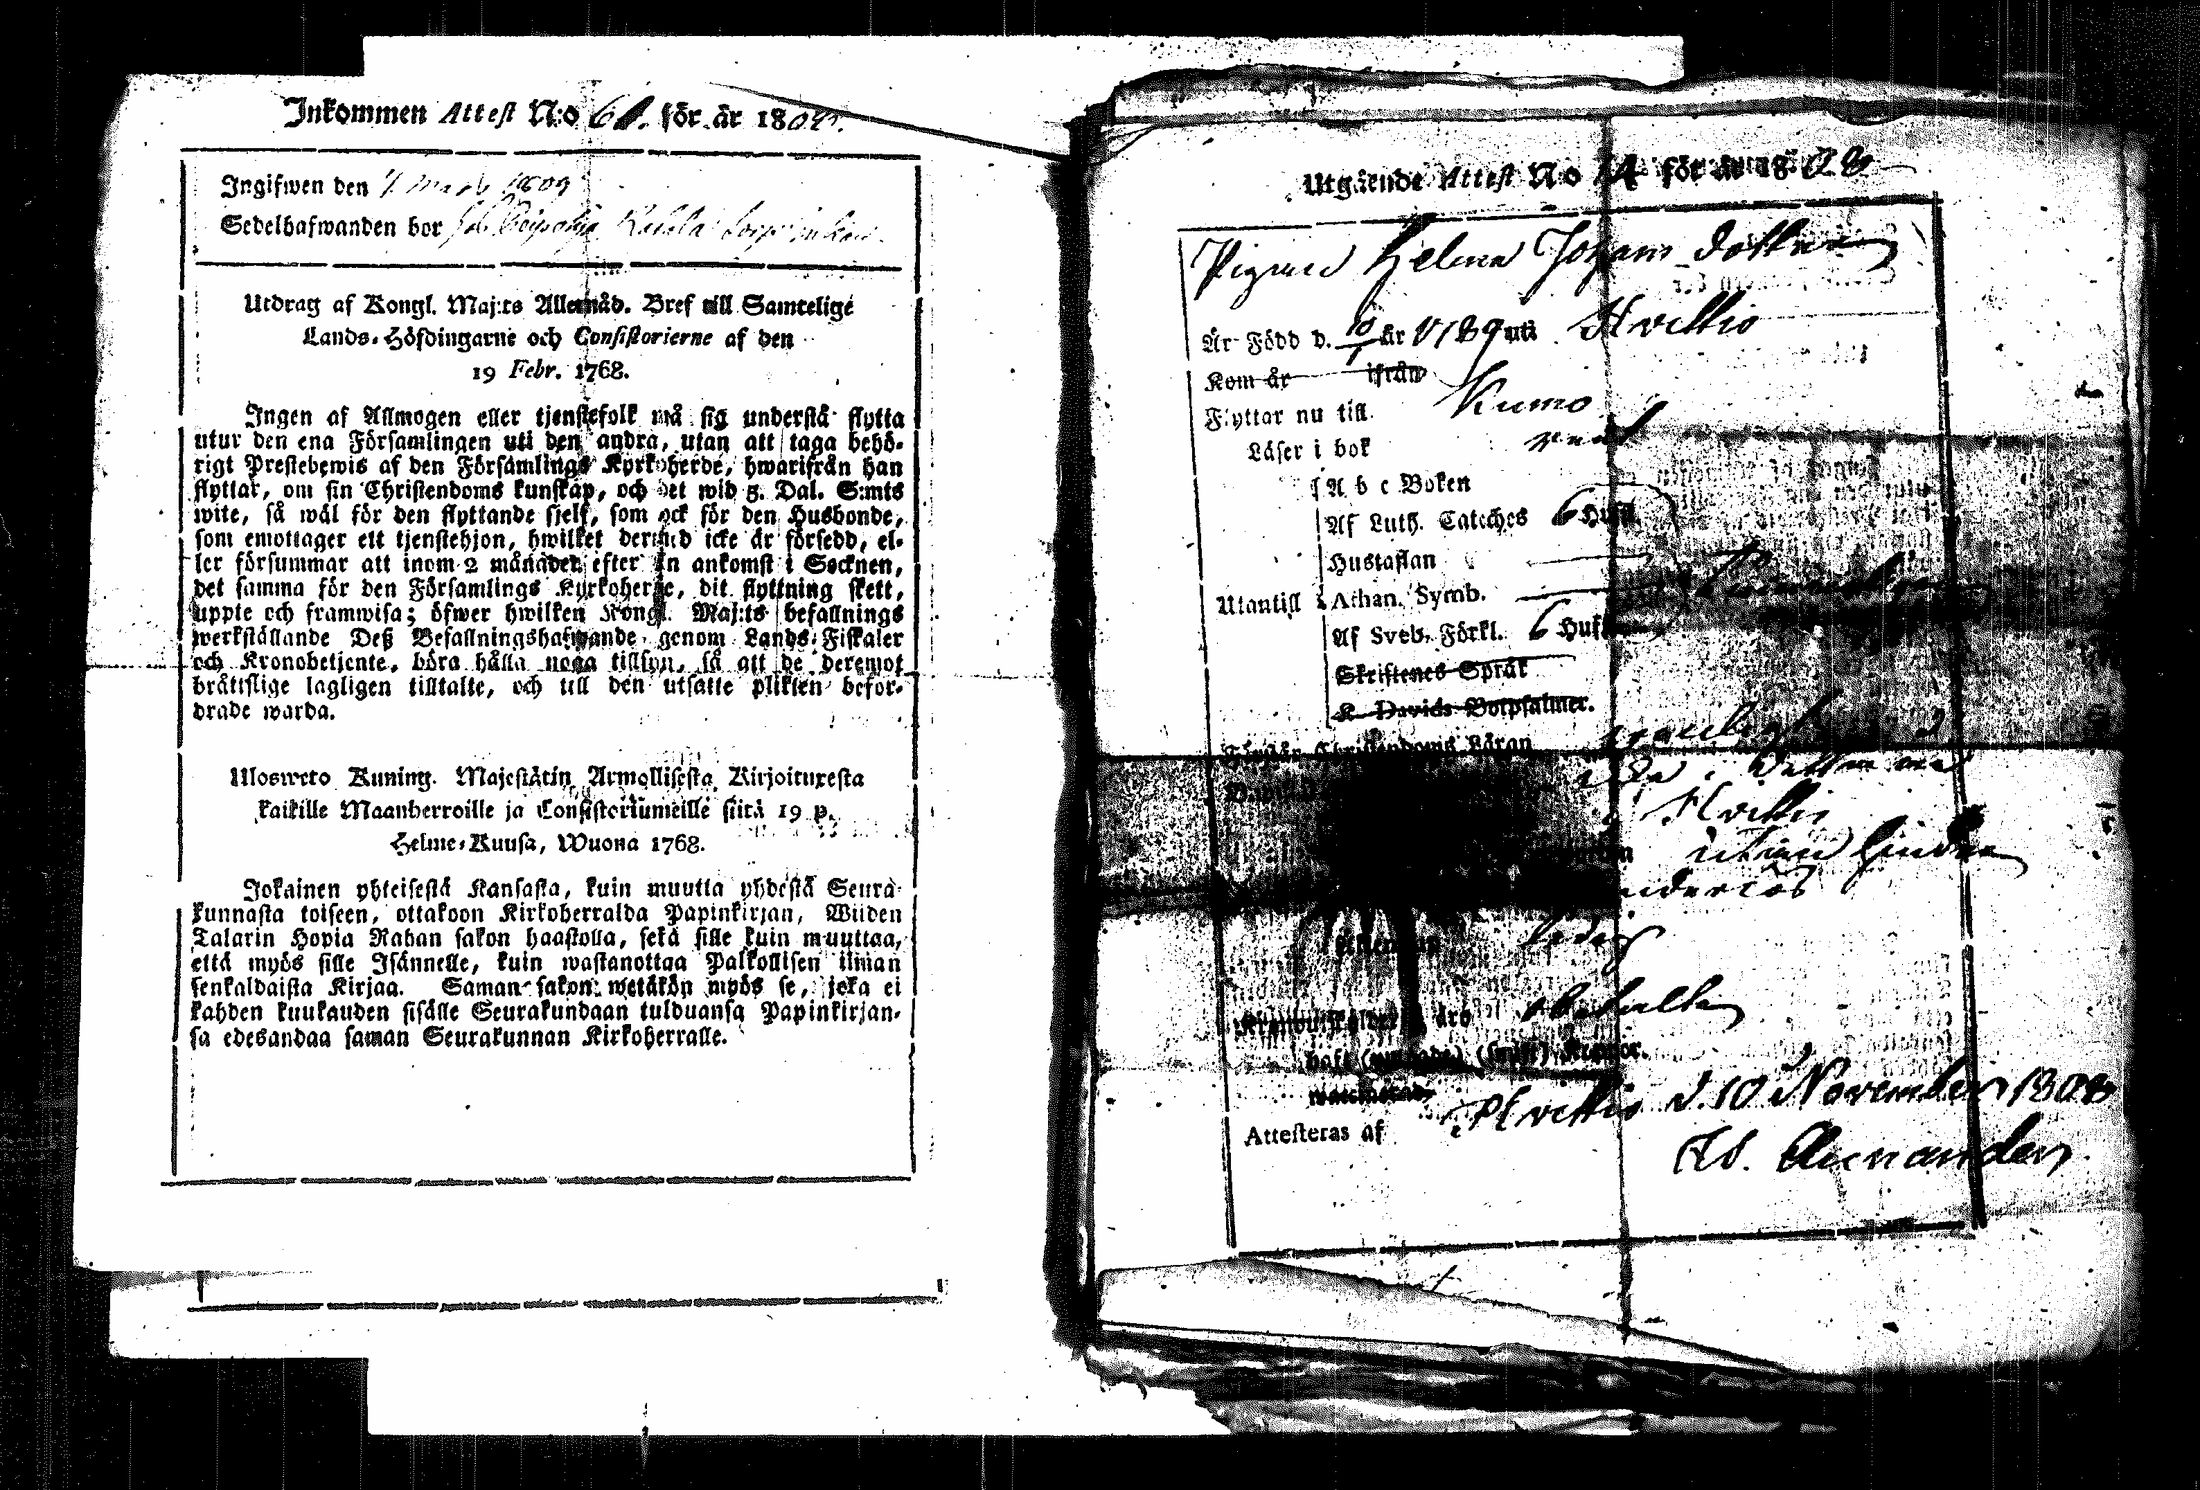 Inkommen Attest N:o 60. för år 1809.
Ingifwen den 1809
Sedelhafwanden bor
Utdrag af Kongl. Maj:ts Allernåd. Bref till Samtelige
Lands-Höfdingarne och Consistorierne af den
19 Febr. 1768.
Ingen af Allmogen eller tjenstefolk må sig understå flytta
utur den ena Församlingen uti den andra, utan att taga behö-
rigt Prestebewis af den Församlings Kyrkoherde, hwarifrån han
flyttar, om sin Christendoms kunskap, och det wid 5. Dal. S:mts
wite, så wäl för den flyttande sjelf, som ock för den Husbonde,
som emottager ett tjenstehjon, hwilket dermed icke är försedd, el-
ler försummar att inom 2 månader efter sin ankomst i Socknen,
det samma för den Församlings Kyrkoherde, dit flyttning skett,
uppte och framwisa; öfwer hwilken Kongl. Maj:ts befallnings
werkställande Deß Befallningshafwande genom Lands-Fiskaler
och Kronobetjente, böra hålla noga tillsyn, så att de deremot
bråttslige lagligen tilltalte, och till den utsatte plikten befor-
drade warda.
Ulosweto Kuning. Majestätin Armollisesta Kirjoituxesta
kaikille Maanherroille ja Consistoriumeille siitä 19 p.
Helme-Kuusa, Wuona 1768.
Jokainen yhteisestä Kansasta, kuin muutta yhdestä Seura-
kunnasta toiseen, ottakoon Kirkoherralda Papinkirjan, Wiiden
Talarin Hopia Rahan sakon haastolla, sekä sille kuin muuttaa,
että myös sille Isännelle, kuin wastanottaa Palkollisen ilman
senkaldaista Kirjaa. Saman sakon wetäkön myös se, joka ei
kahden kuukauden sisälle Seurakundaan tulduansa Papinkirjan-
sa edesandaa saman Seurakunnan Kirkoherralle.
Utgående Attest No 14 för år 1808
Pigan Helena Johans dotter
Är Född d. 10/1 år 1789 uti Hvittis
Kom år ifrån
Flyttar nu till Kumo
Läser i bok
A b c Boken
Af Luth. Cateches 6 Hufst.
Hustaflan
Utantill Athan. Symb.
Af Sveb. Förkl. 6 Hufst.
Skriftenes Språk
K. Davids Botpsalmer.
Förstår Christendoms Läran
Hvittis
utan hinder
ledig
Kronoutskylder äro
haft Koppor.
Attesteras af Hvittis d. 10 November 1808